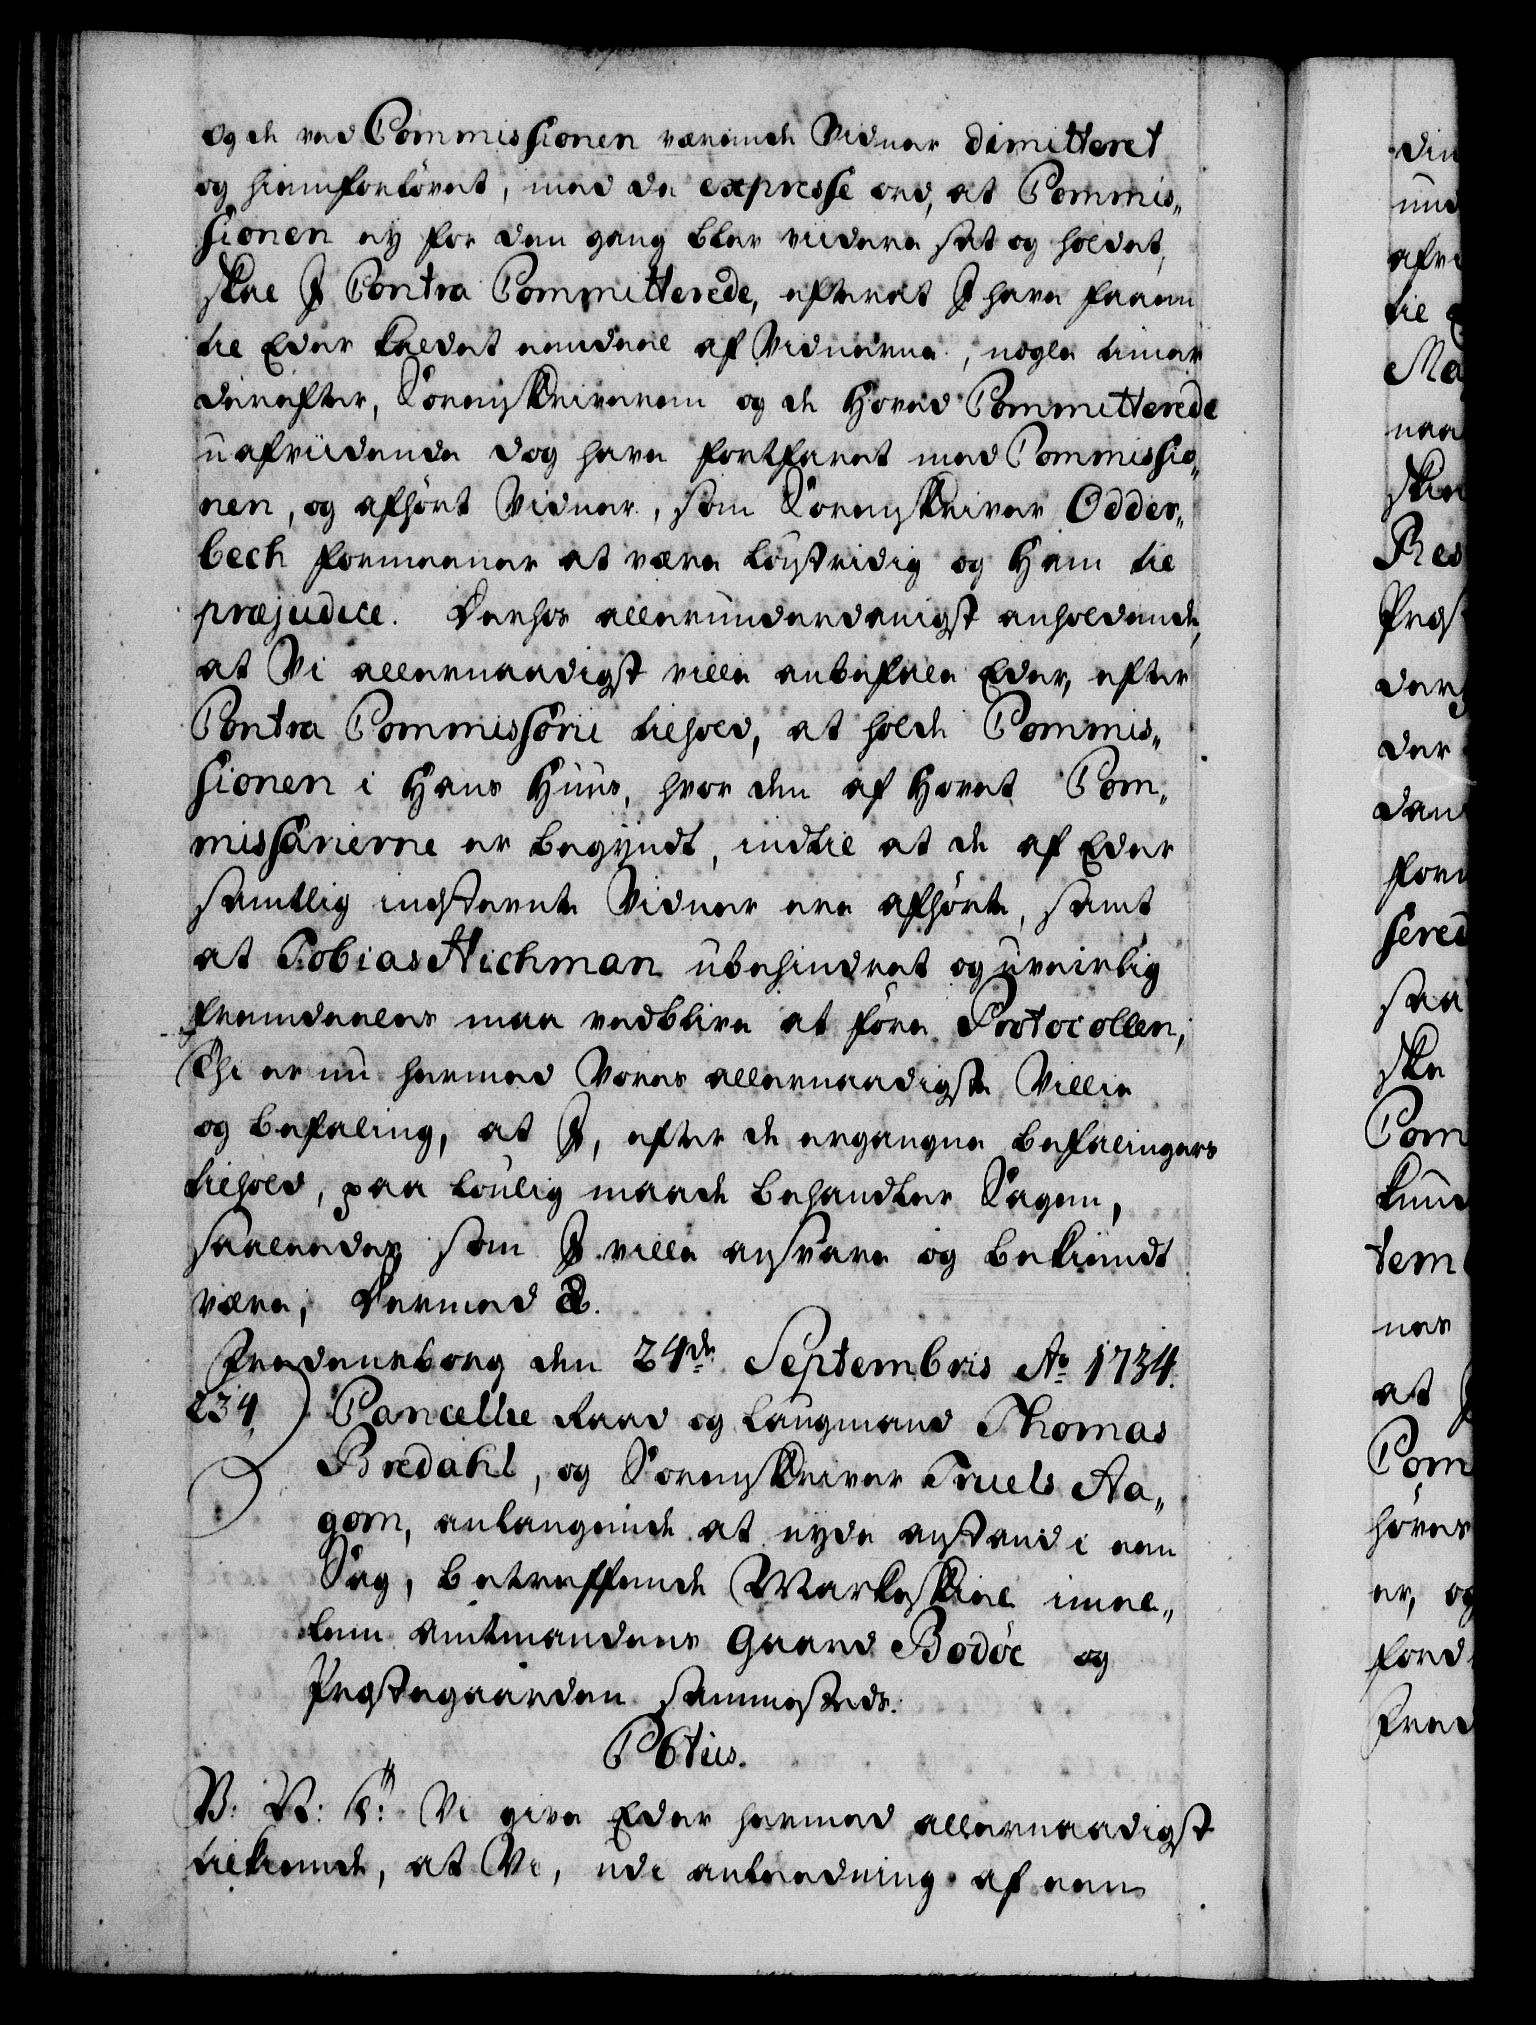 og de ved Commissionen værende Vidner dimitteret
og hiemforlovet, med de expresse ord, at Commis„
sionen ey for den gang blev viidere sat og holdet,
skal I Contra Committerede, efterat I have faaen
til Eder kaldet eendeel af Vidnerne, nogle timer
derefter, Sorenskriveren og de Hoved Committerede
uafviidende dog have fortfaret med Commissio„
nen, og afhört Vidner, som Sorenskriver Odder„
bech formeener at være lovstridig og Ham til
præjudice. Derhos allerunderdanigst anholdende,
at Vi allernaadigst ville anbefale Eder, efter
Contra Commissorii tilhold, at holde Commis„
sionen i Hans Huus, hvor den af Hovet Com„
missarierne er begyndt, indtil at de af Eder
samtlig indstevnte Vidner ere afhörte, samt
at Tobias Hichman ubehindret og uveirlig
fremdeeles maa vedblive at före Protocollen,
Thi er nu hermed Vores allernaadigste Villie
og befaling, at I, efter de ergangne befalingers
tilhold, paa lovlig maade behandler Sagen,
saaleedes som I ville ansvare og bekiendt
være, Dermed &.
Fredensborg den 24de Septembris Ao 1734.
234, Cancellie Raad og Laugmand Thomas
Bredahl, og Sorenskriver Truels Aa„
gorn, anlangende at nyde anstand i een
Sag, betreffende Markeskiel imel„
lem amtmandens Gaard Bodöe og
Præstegaarden sammesteds.
C 6tus.
V: V: G: Vi give Eder hermed allernaadigst
tilkiende, at Vi, udi anleedning af een